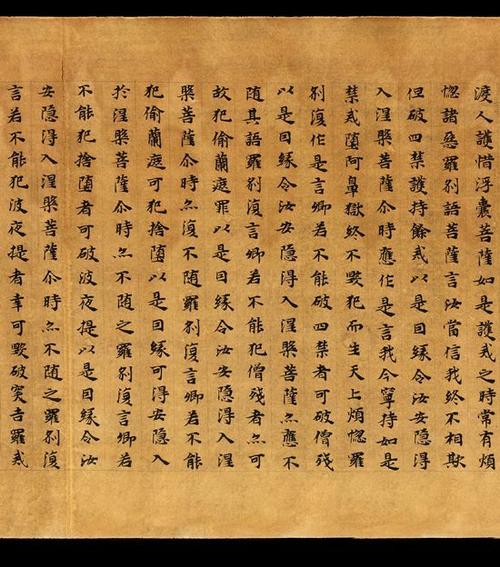 渡人護惜浮囊菩薩如是護戒之時常有煩
惚諸惡羅刹語菩薩言汝當信我終不相欺
但破四禁護持餘戒以是因緣令汝安隱得
入涅槃菩薩尒時應作是言我今寧持如是
禁戒墮阿鼻獄終不毀犯而生天上煩惚羅
刹復作是言卿若不能破四禁者可破僧殘
以是因緣令汝安隱得入涅槃菩薩亦應不
隨其語羅刹復言卿若不能犯僧殘者亦可
故犯偷蘭遮罪以是因緣令汝安隱得入涅
槃菩薩尒時亦復不隨羅刹復言卿若不能
犯偷蘭遮可犯捨墮以是因緣可得安隱入
於涅槃菩薩尒時亦不隨之羅刹復言卿若
不能犯捨墮者可破波夜提以是因緣令汝
安隱得入涅槃菩薩尒時亦不隨之羅刹復
言若不能犯波夜提者幸可毀破突吉羅戒